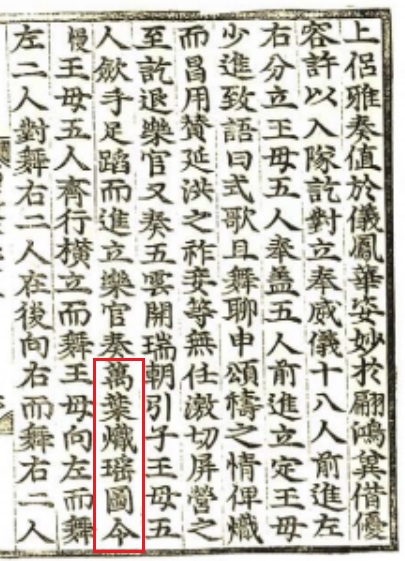 上侶雅奏值於儀鳳華姿妙扵翩鴻冀借優
容許以入隊訖對立奉威儀十八人前進左
右分立王母五人奉盖五人前進立定王母
少進致語曰式歌且舞聊申頌禱之情俾熾
而昌用贊延洪之祚妾等無任激切屏營之
至訖退樂官又奏五雲開瑞朝引子王母五
人歛手足蹈而進立樂官奏萬葉熾瑶圖令
慢王母五人齊行橫立而舞王母向左而舞
左二人對舞右二人在後向右而舞右二人